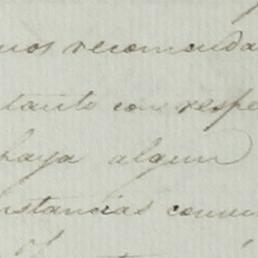 nos recomenda
tanto con respe
haya algun
nstancias conve